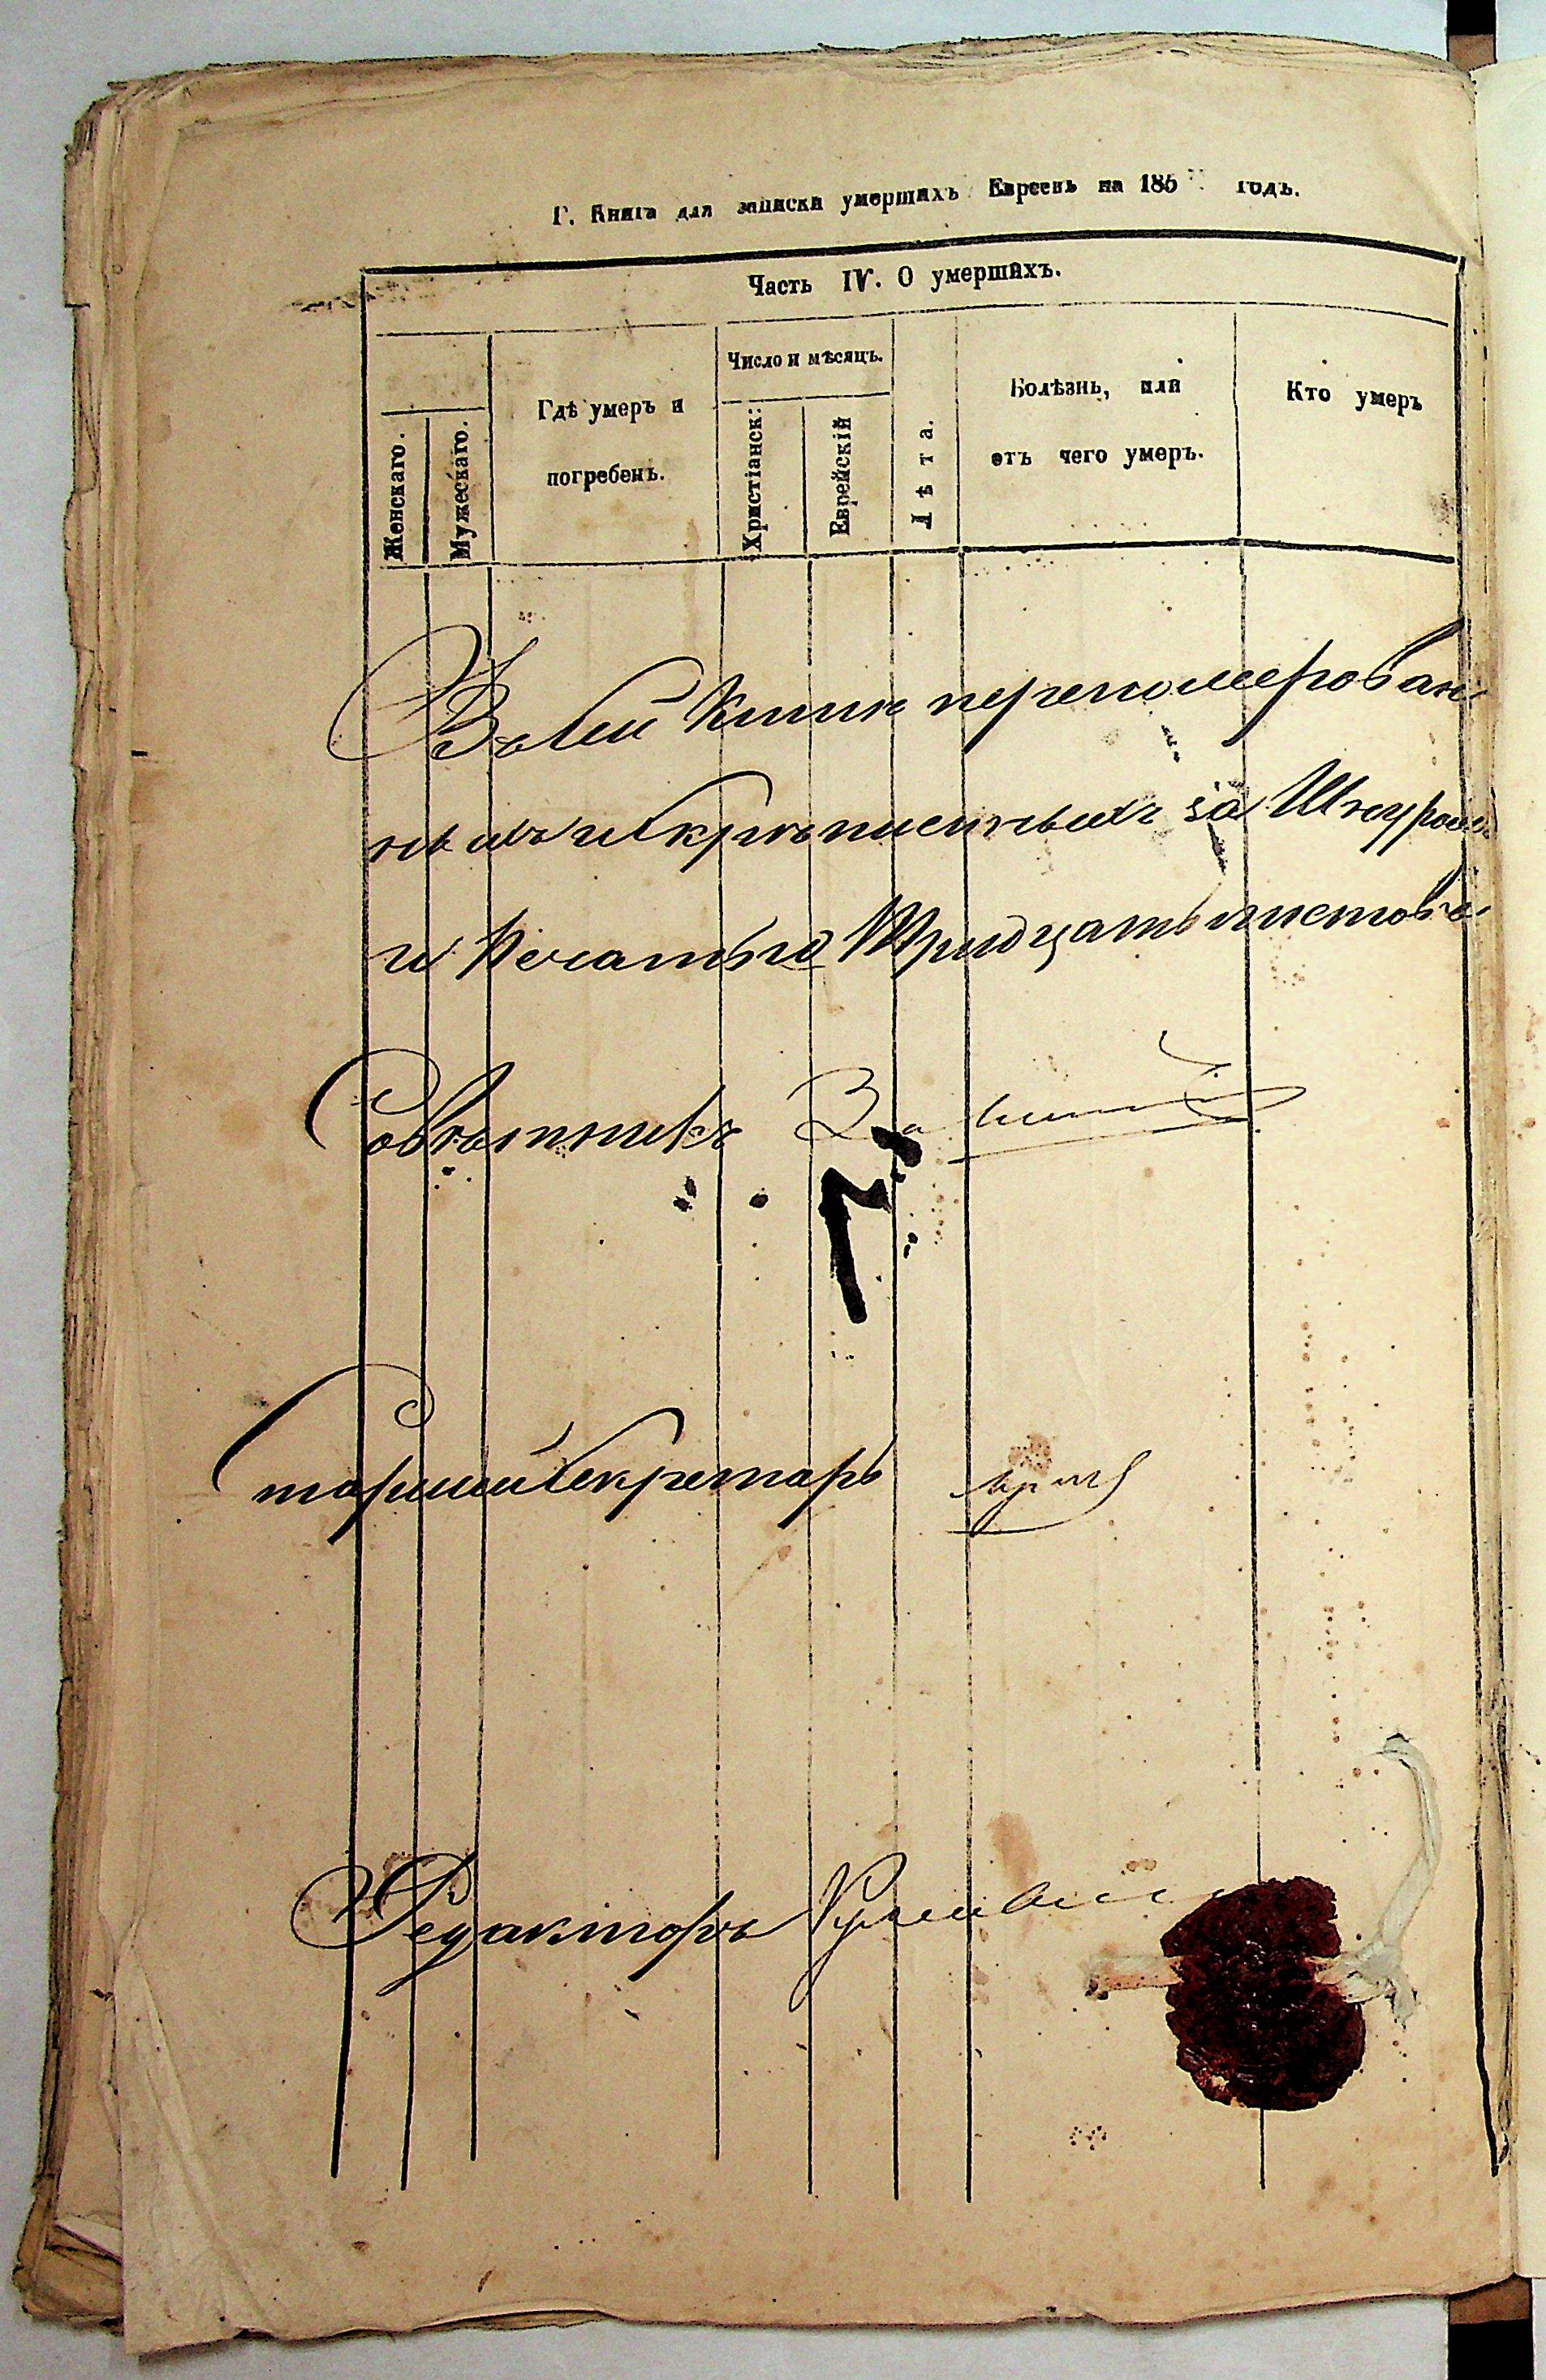 Г. Книга для записки умершихъ Евреевъ на 185 годъ.
Часть IV. О умершихъ.
Женскаго.
Мужескаго.
Гдѣ умеръ и
погребенъ.
Число и мѣсяцъ.
Христіанск:
Еврейскій
Лѣта.
Болѣзнь, или
отъ чего умеръ.
Кто умеръ
Въ сей Книги переномерован
ныхъ и скрѣпленныхъ за Шнуромъ
и Печатью Тридцать листовъ
Совѣтникъ
Старшій Секретарь
Редакторъ